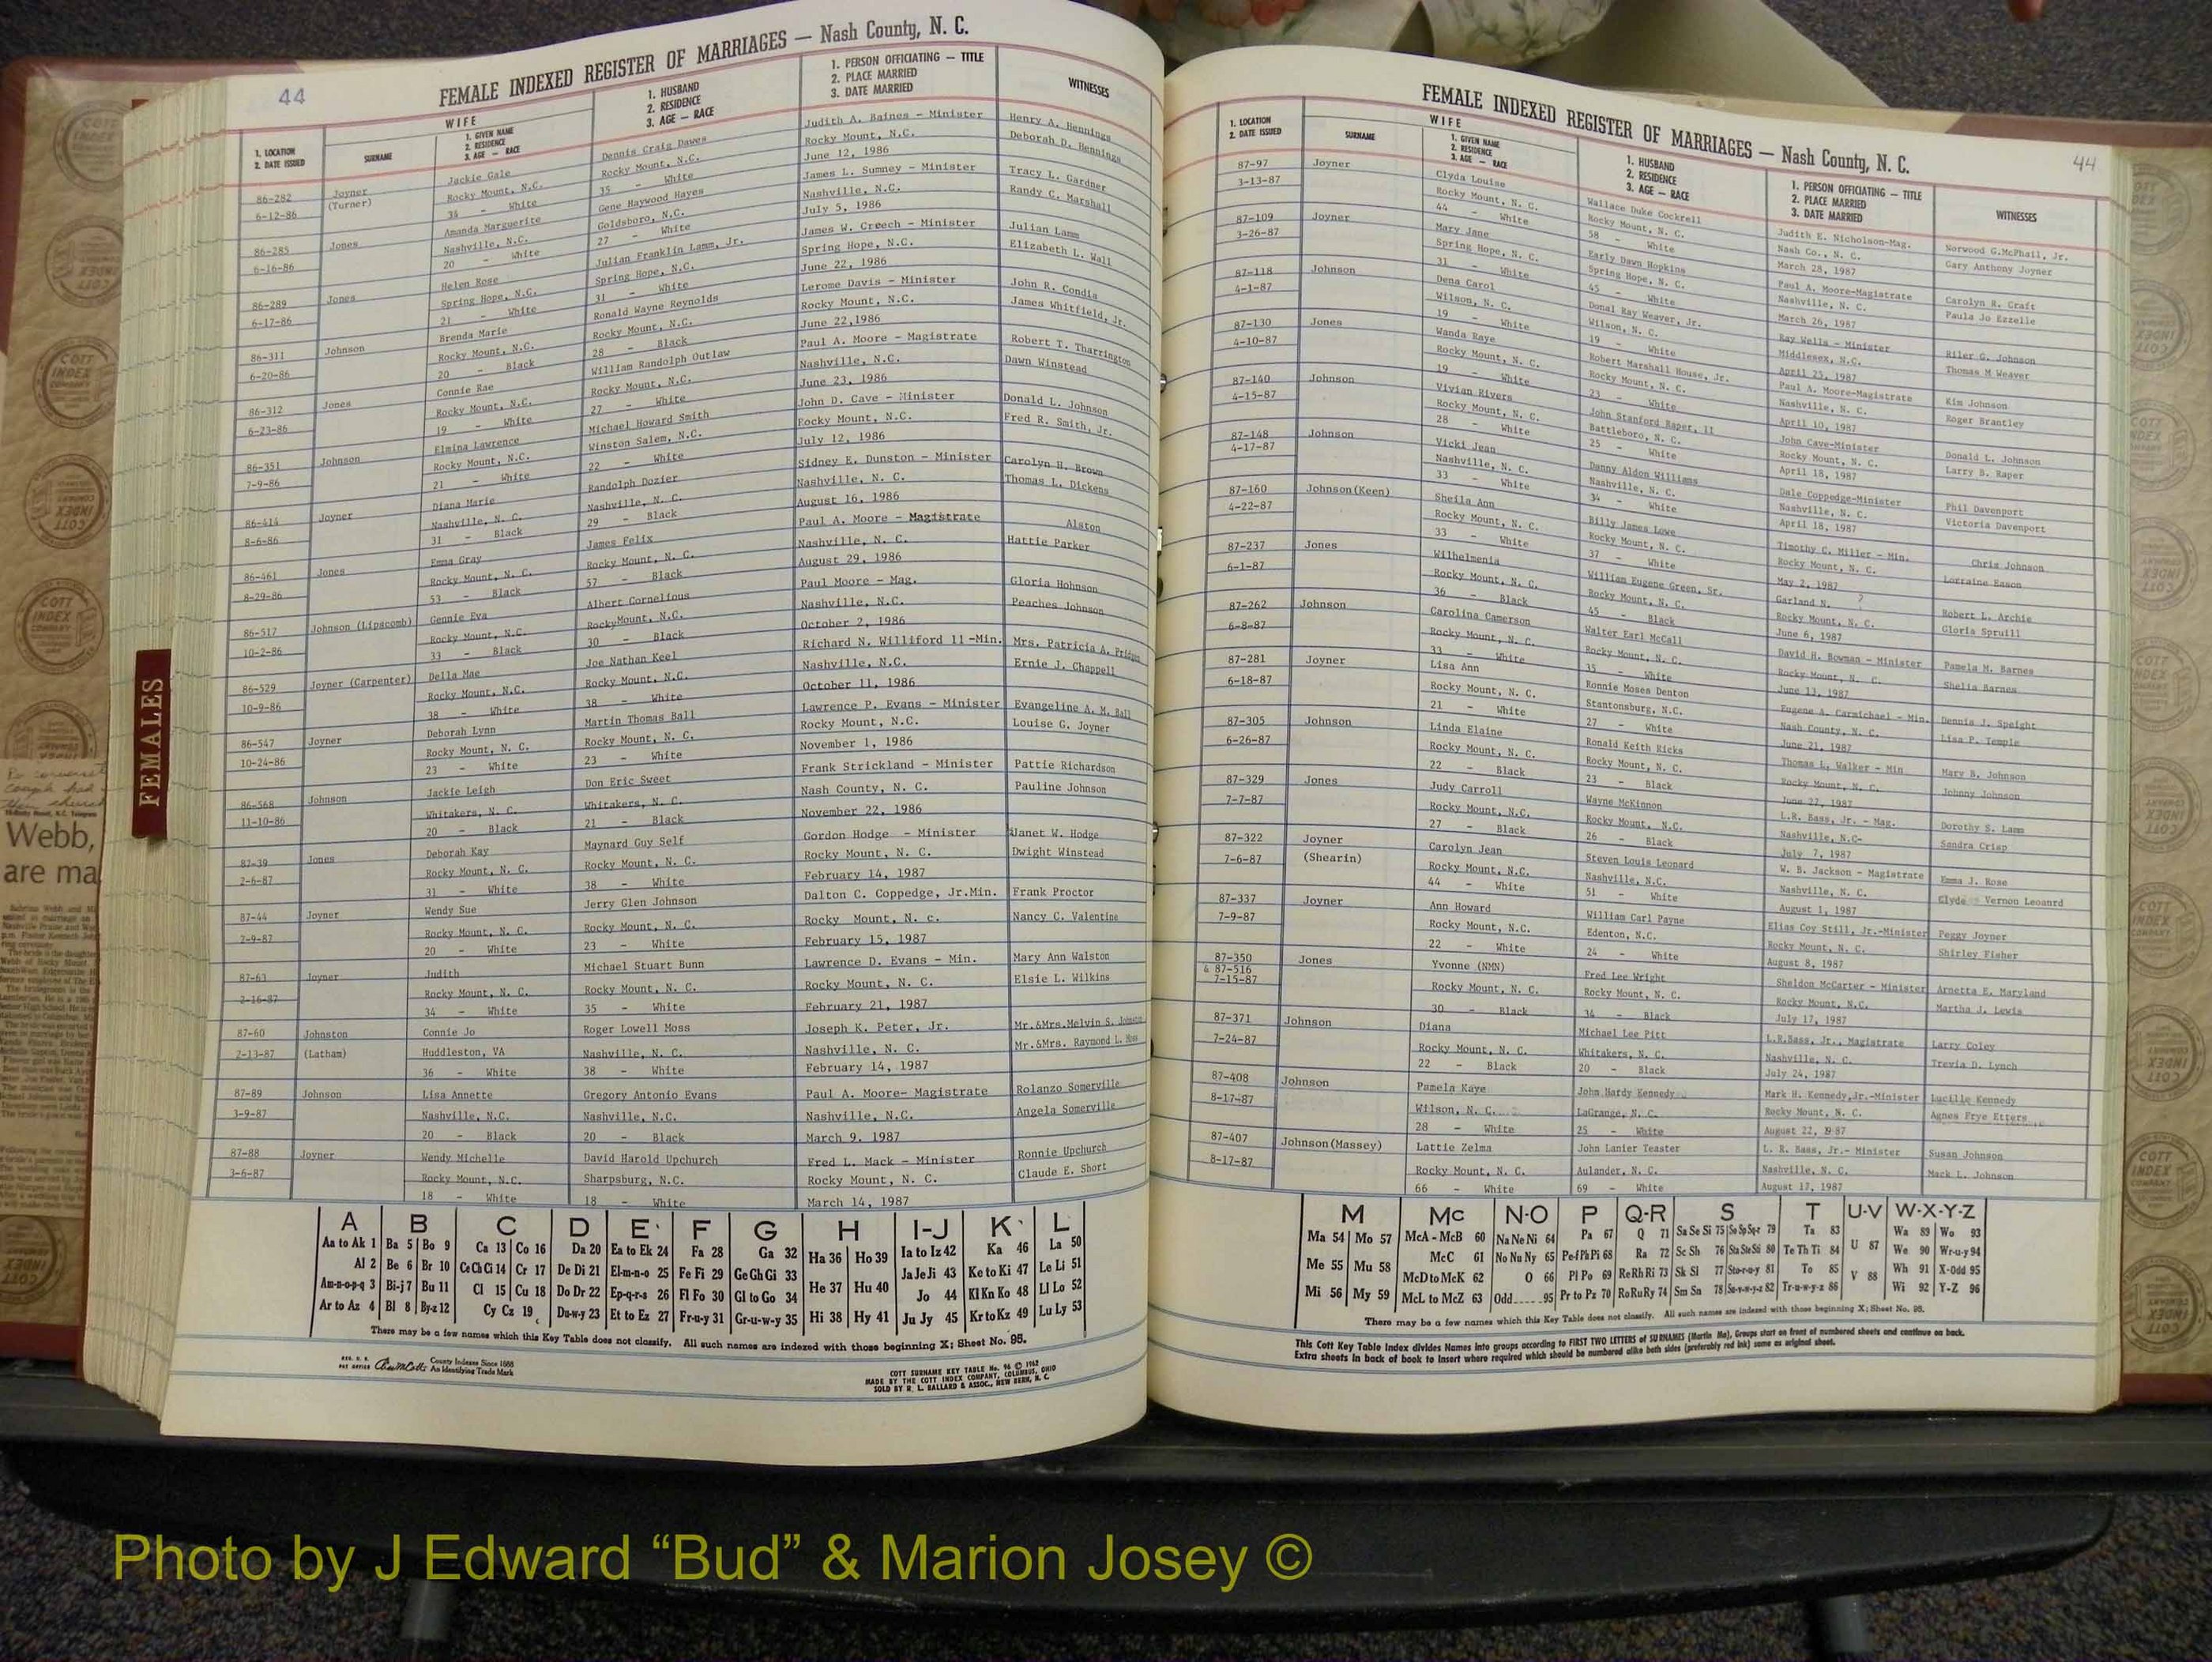 44
FEMALE INDEXED REGISTER OF MARRIAGES — Nash County, N. C.
1. LOCATION
2. DATE ISSUED
WIFE
SURNAME
1. GIVEN NAME
2. RESIDENCE
3. AGE — RACE
1. HUSBAND
2. RESIDENCE
3. AGE — RACE
1. PERSON OFFICIATING — TITLE
2. PLACE MARRIED
3. DATE MARRIED
WITNESSES
86-282 Joyner Jackie Gale Dennis Craig Dawes Judith A. Baines - Minister Henry A. Hennings
6-12-86 (Turner) Rocky Mount, N.C. Rocky Mount, N.C. Rocky Mount, N.C. Deborah D. Hennings
34 - White 35 - White June 12, 1986
86-285 Jones Amanda Marguerite Gene Haywood Hayes James L. Sumney - Minister Tracy L. Gardner
6-16-86 Nashville, N.C. Goldsboro, N.C. Nashville, N.C. Randy C. Marshall
20 - White 27 - White July 5, 1986
86-289 Jones Helen Rose Julian Franklin Lamm, Jr. James W. Creech - Minister Julian Lamm
6-17-86 Spring Hope, N.C. Spring Hope, N.C. Spring Hope, N.C. Elizabeth L. Wall
21 - White 31 - White June 22, 1986
86-311 Johnson Brenda Marie Ronald Wayne Reynolds Lerome Davis - Minister John R. Condis
6-20-86 Rocky Mount, N.C. Rocky Mount, N.C. Rocky Mount, N.C. James Whitfield, Jr.
20 - Black 28 - Black June 22,1986
86-312 Jones Connie Rae William Randolph Outlaw Paul A. Moore - Magistrate Robert T. Tharrington
6-23-86 Rocky Mount, N.C. Rocky Mount, N.C. Nashville, N.C. Dawn Winstead
19 - White 27 - White June 23, 1986
86-351 Johnson Elmina Lawrence Michael Howard Smith John D. Cave - Minister Donald L. Johnson
7-9-86 Rocky Mount, N.C. Winston Salem, N.C. Rocky Mount, N.C. Fred R. Smith, Jr.
21 - White 22 - White July 12, 1986
86-414 Joyner Diana Marie Randolph Dozier Sidney E. Dunston - Minister Carolyn H. Brown
8-6-86 Nashville, N. C. Nashville, N. C. Nashville, N. C. Thomas L. Dickens
31 - Black 29 - Black August 16, 1986
86-461 Jones Emma Gray James Felix Paul A. Moore - Magistrate Alston
8-29-86 Rocky Mount, N. C. Rocky Mount, N. C. Nashville, N. C. Hattie Parker
53 - Black 57 - Black August 29, 1986
86-517 Johnson (Lipscomb) Gennie Eva Albert Cornelious Paul Moore - Mag. Gloria Hohnson
10-2-86 Rocky Mount, N.C. RockyMount, N.C. Nashville, N.C. Peaches Johnson
33 - Black 30 - Black October 2, 1986
86-529 Joyner (Carpenter) Della Mae Joe Nathan Keel Richard N. Williford 11 -Min. Mrs. Patricia A. Pridgen
10-9-86 Rocky Mount, N.C. Rocky Mount, N.C. Nashville, N.C. Ernie J. Chappell
38 - White 38 - White October 11, 1986
86-547 Joyner Deborah Lynn Martin Thomas Ball Lawrence P. Evans - Minister Evangeline A. M. Ball
10-24-86 Rocky Mount, N. C. Rocky Mount, N. C. Rocky Mount, N.C. Louise G. Joyner
23 - White 23 - White November 1, 1986
86-568 Johnson Jackie Leigh Don Eric Sweet Frank Strickland - Minister Pattie Richardson
11-10-86 Whitakers, N. C. Whitakers, N. C. Nash County, N. C. Pauline Johnson
20 - Black 21 - Black November 22, 1986
87-39 Jones Deborah Kay Maynard Guy Self Gordon Hodge - Minister Janet W. Hodge
2-6-87 Rocky Mount, N. C. Rocky Mount, N. C. Rocky Mount, N. C. Dwight Winstead
31 - White 38 - White February 14, 1987
87-44 Joyner Wendy Sue Jerry Glen Johnson Dalton C. Coppedge, Jr.Min. Frank Proctor
2-9-87 Rocky Mount, N. C. Rocky Mount, N. C. Rocky Mount, N. c. Nancy C. Valentine
20 - White 23 - White February 15, 1987
87-63 Joyner Judith Michael Stuart Bunn Lawrence D. Evans - Min. Mary Ann Walston
2-16-87 Rocky Mount, N. C. Rocky Mount, N. C. Rocky Mount, N. C. Elsie L. Wilkins
34 - White 35 - White February 21, 1987
87-60 Johnston Connie Jo Roger Lowell Moss Joseph K. Peter, Jr. Mr.&Mrs.Melvin S. Johnson
2-13-87 (Latham) Huddleston, VA Nashville, N. C. Nashville, N. C. Mr.&Mrs. Raymond L. Moss
36 - White 38 - White February 14, 1987
87-89 Johnson Lisa Annette Gregory Antonio Evans Paul A. Moore- Magistrate Rolanzo Somerville
3-9-87 Nashville, N.C. Nashville, N.C. Nashville, N.C. Angela Somerville
20 - Black 20 - Black March 9, 1987
87-88 Joyner Wendy Michelle David Harold Upchurch Fred L. Mack - Minister Ronnie Upchurch
3-6-87 Rocky Mount, N.C. Sharpsburg, N.C. Rocky Mount, N. C. Claude E. Short
18 - White 18 - White March 14, 1987
A B C D E F G H I-J K L
Aa to Ak 1 Ba 5 Bo 9 Ca 13 Co 16 Da 20 Ea to Ek 24 Fa 28 Ga 32 Ha 36 Ho 39 Ia to Iz 42 Ka 46 La 50
Al 2 Be 6 Br 10 Ce Ch Ci 14 Cr 17 De Di 21 El-m-n-o 25 Fe Fi 29 Ge Gh Gi 33 He 37 Hu 40 Ja Je Ji 43 Ke to Ki 47 Le Li 51
Am-n-o-p-q 3 Bi-j 7 Bu 11 Cl 15 Cu 18 Do Dr 22 Ep-q-r-s 26 Fl Fo 30 Gl to Go 34 Jo 44 Kl Kn Ko 48 Ll Lo 52
Ar to Az 4 Bl 8 By-z 12 Cy Cz 19 Du-w-y 23 Et to Ez 27 Fr-u-y 31 Gr-u-w-y 35 Hi 38 Hy 41 Ju Jy 45 Kr to Kz 49 Lu Ly 53
There may be a few names which this Key Table does not classify. All such names are indexed with those beginning X; Sheet No. 95.
County Indexes Since 1888
An Identifying Trade Mark
COTT SURNAME KEY TABLE No. 96 © 1962
MADE BY THE COTT INDEX COMPANY, COLUMBUS, OHIO
SOLD BY R. L. BALLARD & ASSOC., NEW BERN, N. C.
FEMALE INDEXED REGISTER OF MARRIAGES — Nash County, N. C.
44
1. LOCATION
2. DATE ISSUED
WIFE
SURNAME
1. GIVEN NAME
2. RESIDENCE
3. AGE — RACE
1. HUSBAND
2. RESIDENCE
3. AGE — RACE
1. PERSON OFFICIATING — TITLE
2. PLACE MARRIED
3. DATE MARRIED
WITNESSES
87-97 Joyner Clyda Louise Wallace Duke Cockrell Judith E. Nicholson-Mag. Norwood G.McPhail, Jr.
3-13-87 Rocky Mount, N.C. Rocky Mount, N. C. Nash Co., N. C. Gary Anthony Joyner
44 - White 58 - White March 28, 1987
87-109 Joyner Mary Jane Early Dawn Hopkins Paul A. Moore-Magistrate Carolyn R. Craft
3-26-87 Spring Hope, N. C. Spring Hope, N. C. Nashville, N. C. Paula Jo Ezzelle
31 - White 45 - White March 26, 1987
87-118 Johnson Dena Carol Donal Ray Weaver, Jr. Ray Wells - Minister Riler G. Johnson
4-1-87 Wilson, N. C. Wilson, N. C. Middlesex, N.C. Thomas M Weaver
19 - White 19 - White April 25, 1987
87-130 Jones Wanda Raye Robert Marshall House, Jr. Paul A. Moore-Magistrate Kim Johnson
4-10-87 Rocky Mount, N. C. Rocky Mount, N. C. Nashville, N. C. Roger Brantley
19 - White 23 - White April 10, 1987
87-140 Johnson Vivian Rivers John Stanford Raper, II John Cave-Minister Donald L. Johnson
4-15-87 Rocky Mount, N. C. Battleboro, N. C. Rocky Mount, N. C. Larry B. Raper
28 - White 25 - White April 18, 1987
87-148 Johnson Vicki Jean Danny Aldon Williams Dale Coppedge-Minister Phil Davenport
4-17-87 Nashville, N. C. Nashville, N. C. Nashville, N. C. Victoria Davenport
33 - White 34 - White April 18, 1987
87-160 Johnson(Keen) Sheila Ann Billy James Lowe Timothy C. Miller - Min. Chris Johnson
4-22-87 Rocky Mount, N. C. Rocky Mount, N. C. Rocky Mount, N. C. Lorraine Eason
33 - White 37 - White May 2, 1987
87-237 Jones Wilhelmenia William Eugene Green, Sr. Garland N. ? Robert L. Archie
6-1-87 Rocky Mount, N. C. Rocky Mount, N. C. Rocky Mount, N. C. Gloria Spruill
36 - Black 45 - Black June 6, 1987
87-262 Johnson Carolina Camerson Walter Earl McCall David H. Bowman - Minister Pamela M. Barnes
6-8-87 Rocky Mount, N. C. Rocky Mount, N. C. Rocky Mount, N. C. Shelia Barnes
33 - White 35 - White June 13, 1987
87-281 Joyner Lisa Ann Ronnie Moses Denton Eugene A. Carmichael - Min. Dennis J. Speight
6-18-87 Rocky Mount, N. C. Stantonsburg, N.C. Nash County, N. C. Lisa P. Temple
21 - White 27 - White June 21, 1987
87-305 Johnson Linda Elaine Ronald Keith Ricks Thomas L. Walker - Min Mary B. Johnson
6-26-87 Rocky Mount, N. C. Rocky Mount, N. C. Rocky Mount, N. C. Johnny Johnson
22 - Black 23 - Black June 27, 1987
87-329 Jones Judy Carroll Wayne McKinnon L.R. Bass, Jr. - Mag. Dorothy S. Lamm
7-7-87 Rocky Mount, N.C. Rocky Mount, N.C. Nashville, N.C. Sandra Crisp
27 - Black 26 - Black July 7, 1987
87-322 Joyner Carolyn Jean Steven Louis Leonard W. B. Jackson - Magistrate Emma J. Rose
7-6-87 (Shearin) Rocky Mount, N.C. Nashville, N.C. Nashville, N. C. Clyde Vernon Leoanrd
44 - White 51 - White August 1, 1987
87-337 Joyner Ann Howard William Carl Payne Elias Coy Still, Jr.-Minister Peggy Joyner
7-9-87 Rocky Mount, N.C. Edenton, N.C. Rocky Mount, N. C. Shirley Fisher
22 - White 24 - White August 8, 1987
87-350 Jones Yvonne (NMN) Fred Lee Wright Sheldon McCarter - Minister Arnetta E. Maryland
& 87-516
7-15-87 Rocky Mount, N. C. Rocky Mount, N. C. Rocky Mount, N.C. Martha J. Lewis
30 - Black 34 - Black July 17, 1987
87-371 Johnson Diana Michael Lee Pitt L.R.Bass, Jr., Magistrate Larry Coley
7-24-87 Rocky Mount, N. C. Whitakers, N. C. Nashville, N. C. Trevia D. Lynch
22 - Black 20 - Black July 24, 1987
87-408 Johnson Pamela Kaye John Hardy Kennedy Mark H. Kennedy,Jr.-Minister Lucille Kennedy
8-17-87 Wilson, N. C. LaGrange, N. C. Rocky Mount, N. C. Agnes Frye Etters
28 - White 25 - White August 22, 1987
87-407 Johnson(Massey) Lattie Zelma John Lanier Teaster L. R. Bass, Jr.- Minister Susan Johnson
8-17-87 Rocky Mount, N. C. Aulander, N. C. Nashville, N. C. Mack L. Johnson
66 - White 69 - White August 17, 1987
M Mc N-O P Q-R S T U-V W-X-Y-Z
Ma 54 Mo 57 McA - McB 60 Na Ne Ni 64 Pa 67 Q 71 Sa Se Si 75 So Sp Sq-r 79 Ta 83 U 87 Wa 89 Wo 93
Me 55 Mu 58 McC 61 No Nu Ny 65 Pe-f Ph Pi 68 Ra 72 Sc Sh 76 Sta Ste Sti 80 Te Th Ti 84 We 90 Wr-u-y 94
McD to McK 62 O 66 Pl Po 69 Re Rh Ri 73 Sk Sl 77 Sto-r-u-y 81 To 85 V 88 Wh 91 X-Odd 95
Mi 56 My 59 McL to McZ 63 Odd 95 Pr to Pz 70 Ro Ru Ry 74 Sm Sn 78 Su-v-w-y-z 82 Tr-u-w-y-z 86 Wi 92 Y-Z 96
There may be a few names which this Key Table does not classify. All such names are indexed with those beginning X; Sheet No. 95.
This Cott Key Table Index divides Names into groups according to FIRST TWO LETTERS of SURNAMES (Martin Ma), Groups start on front of numbered sheets and continue on back.
Extra sheets in back of book to insert where required which should be numbered alike both sides (preferably red ink) same as original sheet.
FEMALES
Webb,
are ma
COTT INDEX COMPANY
Photo by J Edward “Bud” & Marion Josey ©